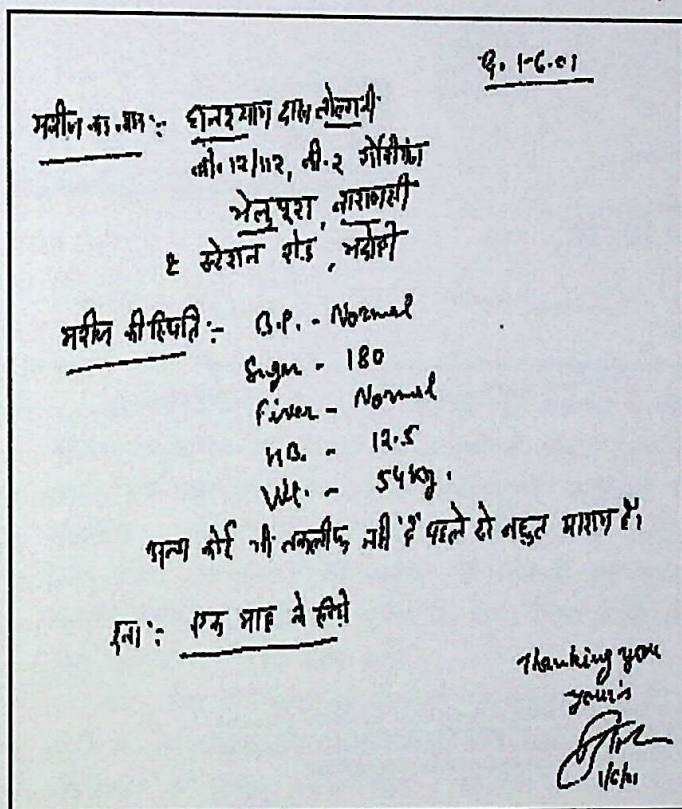 दि. 1-6-01
मरीज का नाम :- घनश्याम दास तोलानी
बी. 12/112, बी-2 गौरीगंज
भेलुपुरा, वाराणसी
& स्टेशन रोड, भदोही
मरीज की स्थिति :- B.P. - Normal
Sugar - 180
Fiver - Normal
HB. - 12.5
Wt. - 54 kg.
अन्य कोई भी तकलीफ नहीं है पहले से बहुत आराम है।
दवा :- एक माह के लिये
Thanking you
your's
1/6/01